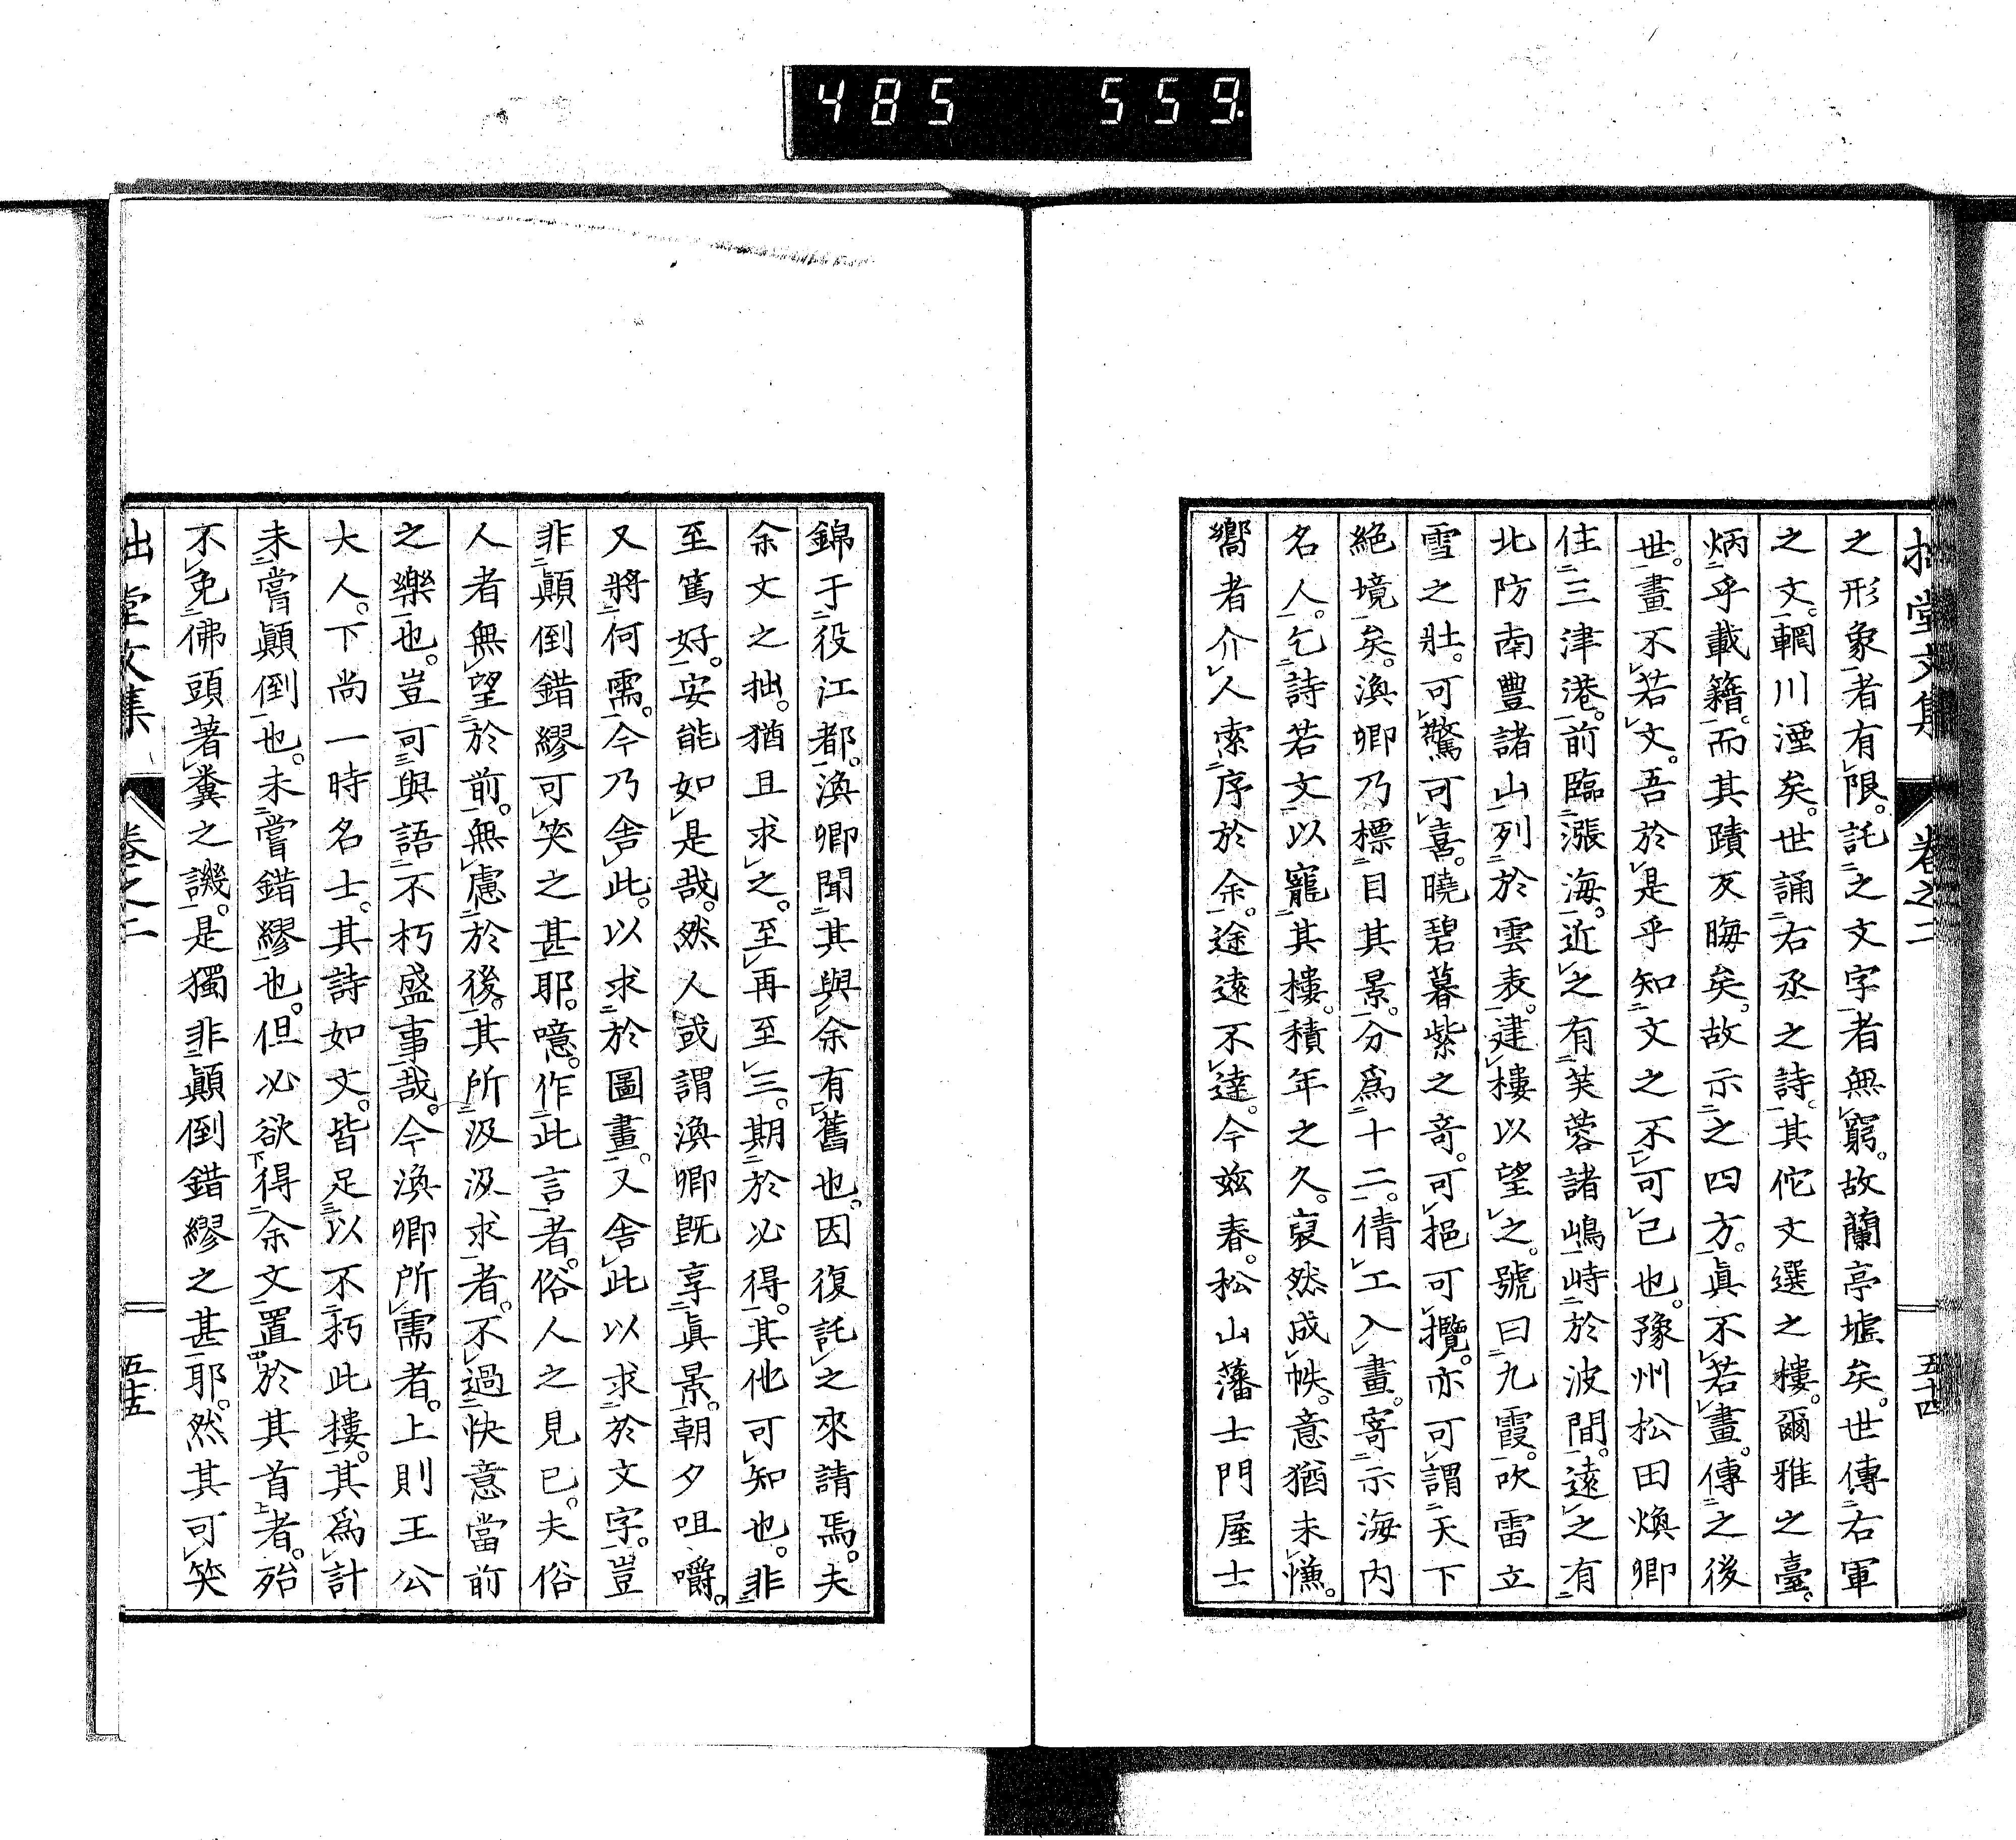 485 559
拙堂文集 卷之二 五十四
之形象者有限。託之文字者無窮。故蘭亭墟矣。世傳右軍
之文。輞川湮矣。世誦右丞之詩。其佗文選之樓。爾雅之臺。
炳乎載籍。而其蹟友晦矣。故示之四方。眞不若畫。傳之後
世。畫不若文。吾於是乎知文之不可已也。豫州松田煥卿
住三津港。前臨漲海。近之有芙蓉諸嶋峙於波間。遠之有
北防南豐諸山列於雲表。建樓以望之。號曰九霞。吹雷立
雪之壯。可驚可喜。曉碧暮紫之奇。可挹可攬。亦可謂天下
絕境矣。渙卿乃標目其景。分爲十二。倩工入畫。寄示海內
名人。乞詩若文以寵其樓。積年之久。裒然成帙。意猶未慊。
嚮者介人索序於余。途遠不達。今玆春。松山藩士門屋士
錦于役江都。渙卿聞其與余有舊也。因復託之來請焉。夫
余文之拙。猶且求之。至再至三。期於必得。其他可知也。非
至篤好。安能如是哉。然人或謂渙卿旣享眞景。朝夕咀嚼。
又將何需。今乃舍此。以求於圖畫。又舍此以求於文字。豈
非顚倒錯繆可笑之甚耶。噫。作此言者。俗人之見已。夫俗
人者無望於前。無慮於後。其所汲汲求者。不過快意當前
之樂也。豈可與語不朽盛事哉。今渙卿所需者。上則王公
大人。下尚一時名士。其詩如文。皆足以不朽此樓。其爲計
未嘗顚倒也。未嘗錯繆也。但必欲得余文置於其首者。殆
不免佛頭著糞之譏。是獨非顚倒錯繆之甚耶。然其可笑
拙堂文集 卷之二 五十五